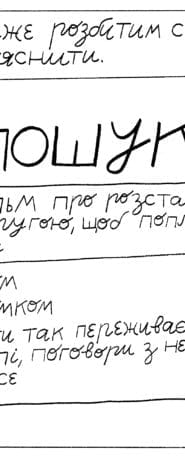 же розбитим с
яснити.
пошук
льм про розста
ругою, щоб попл
ом
мком
и так переживає
лі, поговори з не
се